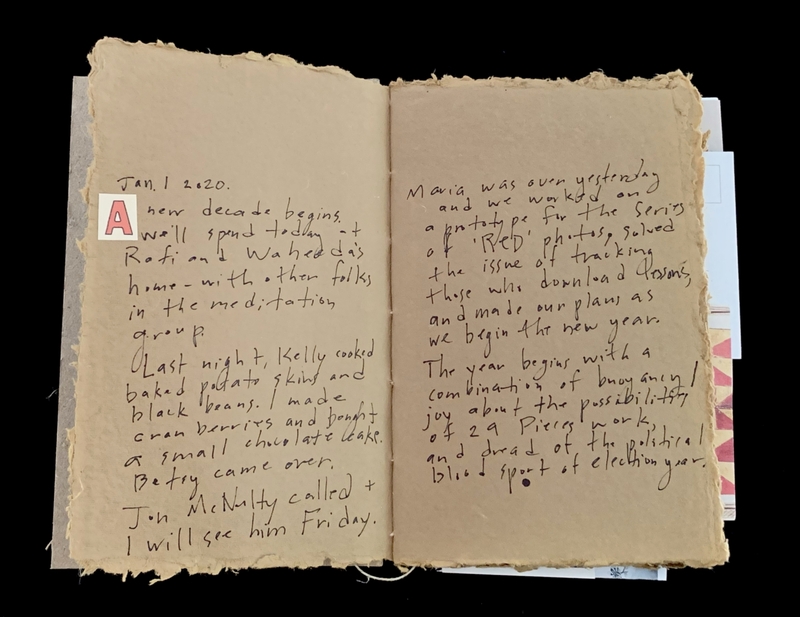 Jan. 1 2020.
A new decade begins.
We'll spend today at
Rafi and Waheeda's
home - with other folks
in the meditation
group.
Last night, Kelly cooked
baked potato skins and
black beans. I made
cran berries and bought
a small chocolate cake.
Betsy came over.
Jon McNulty called +
I will see him Friday.
Maria was over yesterday
and we worked on
a prototype for the series
of 'RED' photos, solved
the issue of tracking
those who download lessons,
and made our plans as
we begin the new year.
The year begins with a
combination of buoyancy/
joy about the possibility
of 29 Pieces work,
and dread of the political
blood sport of election year.